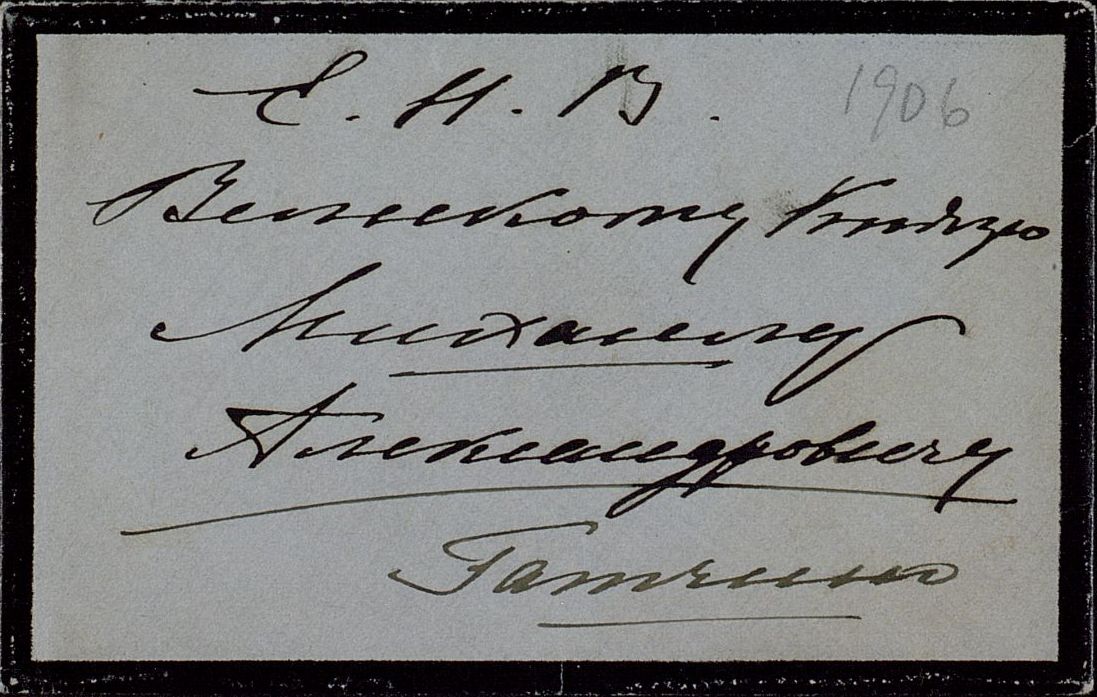 Е. И. В. 1906
Великому Князю
Михаилу
Александровичу
Гатчино